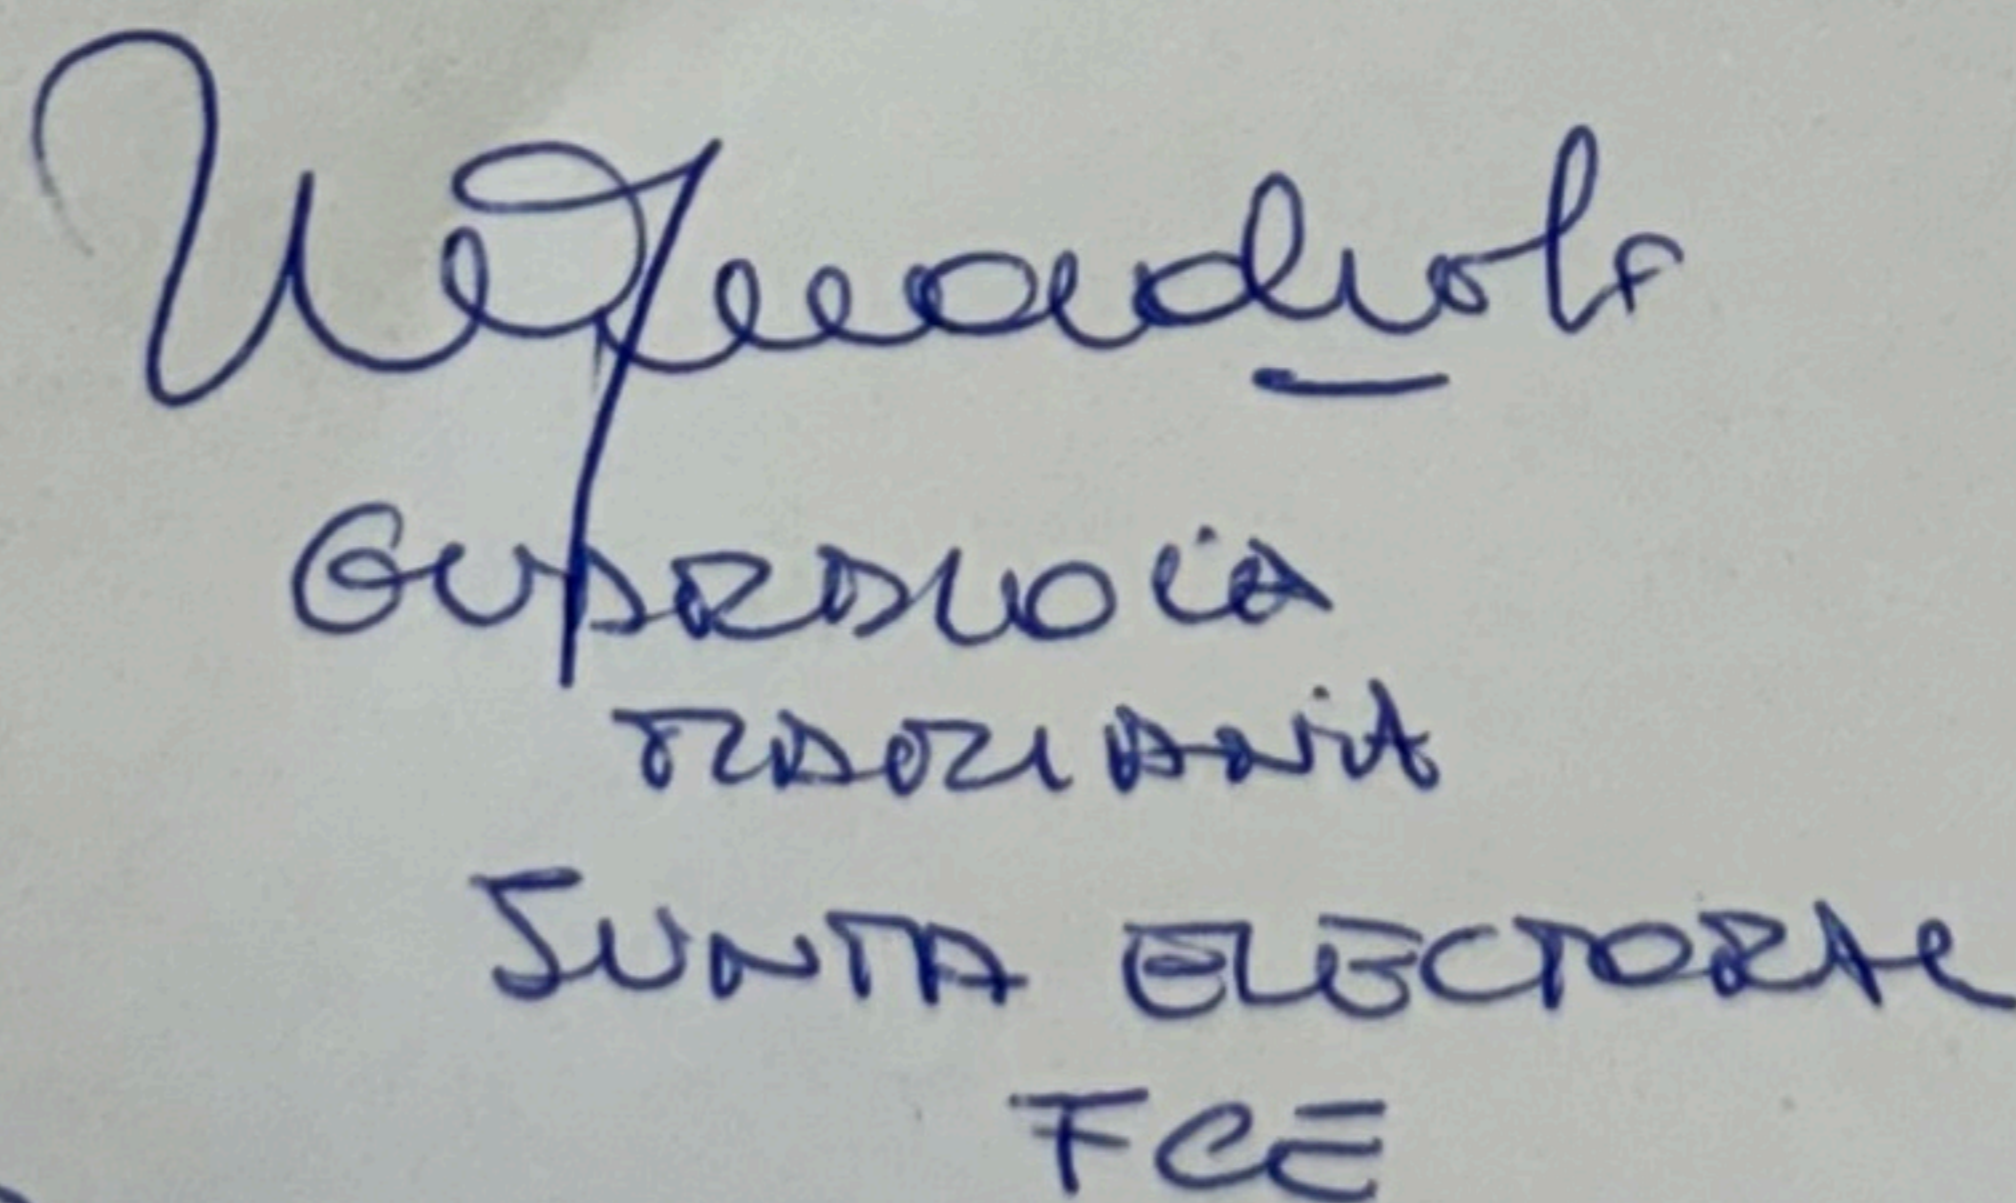 GUARDIOLA
MARIANA
JUNTA ELECTORAL
FCE